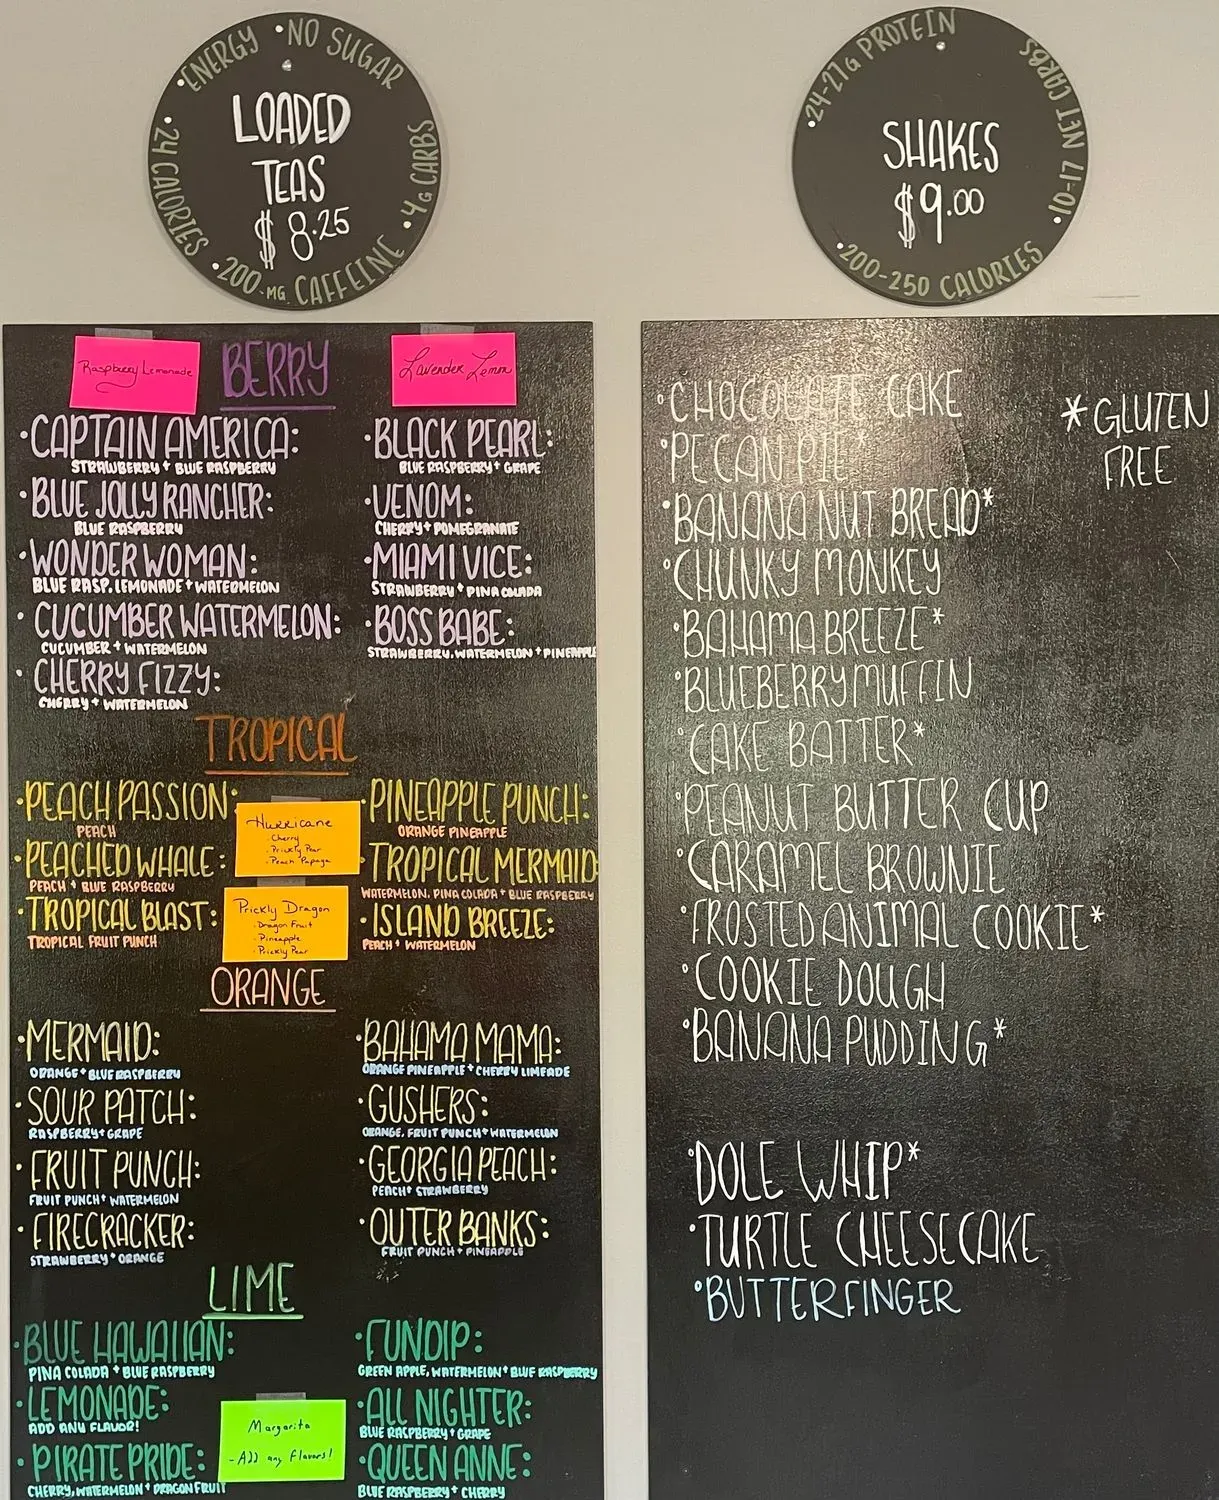 • ENERGY • NO SUGAR
• 4G CARBS
• 200 MG CAFFEINE
• 24 CALORIES
LOADED
TEAS
$ 8.25
• 24-27G PROTEIN
• 10-17 NET CARBS
• 200-250 CALORIES
SHAKES
$9.00
Raspberry Lemonade
BERRY
Lavender Lemon
• CAPTAIN AMERICA:
STRAWBERRY + BLUE RASPBERRY
• BLUE JOLLY RANCHER:
BLUE RASPBERRY
• WONDER WOMAN:
BLUE RASP. LEMONADE + WATERMELON
• CUCUMBER WATERMELON:
CUCUMBER + WATERMELON
• CHERRY FIZZY:
CHERRY + WATERMELON
• BLACK PEARL:
BLUE RASPBERRY + GRAPE
• VENOM:
CHERRY + POMEGRANATE
• MIAMI VICE:
STRAWBERRY + PINA COLADA
• BOSS BABE:
STRAWBERRY, WATERMELON + PINEAPPLE
TROPICAL
• PEACH PASSION:
PEACH
• PEACHED WHALE:
PEACH + BLUE RASPBERRY
• TROPICAL BLAST:
TROPICAL FRUIT PUNCH
Hurricane
- Cherry
- Prickly Pear
- Peach Papaya
Prickly Dragon
- Dragon Fruit
- Pineapple
- Prickly Pear
• PINEAPPLE PUNCH:
ORANGE PINEAPPLE
• TROPICAL MERMAID:
WATERMELON, PINA COLADA + BLUE RASPBERRY
• ISLAND BREEZE:
PEACH + WATERMELON
ORANGE
• MERMAID:
ORANGE + BLUE RASPBERRY
• SOUR PATCH:
RASPBERRY + GRAPE
• FRUIT PUNCH:
FRUIT PUNCH + WATERMELON
• FIRECRACKER:
STRAWBERRY + ORANGE
• BAHAMA MAMA:
ORANGE PINEAPPLE + CHERRY LIMEADE
• GUSHERS:
ORANGE, FRUIT PUNCH + WATERMELON
• GEORGIA PEACH:
PEACH + STRAWBERRY
• OUTER BANKS:
FRUIT PUNCH + PINEAPPLE
LIME
• BLUE HAWAIIAN:
PINA COLADA + BLUE RASPBERRY
• LEMONADE:
ADD ANY FLAVOR!
• PIRATE PRIDE:
CHERRY, WATERMELON + DRAGON FRUIT
Margarita
- Add any flavors!
• FUNDIP:
GREEN APPLE, WATERMELON + BLUE RASPBERRY
• ALL NIGHTER:
BLUE RASPBERRY + GRAPE
• QUEEN ANNE:
BLUE RASPBERRY + CHERRY
• CHOCOLATE CAKE
• PECAN PIE*
• BANANA NUT BREAD*
• CHUNKY MONKEY
• BAHAMA BREEZE*
• BLUEBERRY MUFFIN
• CAKE BATTER*
• PEANUT BUTTER CUP
• CARAMEL BROWNIE
• FROSTED ANIMAL COOKIE*
• COOKIE DOUGH
• BANANA PUDDING*
• DOLE WHIP*
• TURTLE CHEESECAKE
• BUTTERFINGER
* GLUTEN
FREE